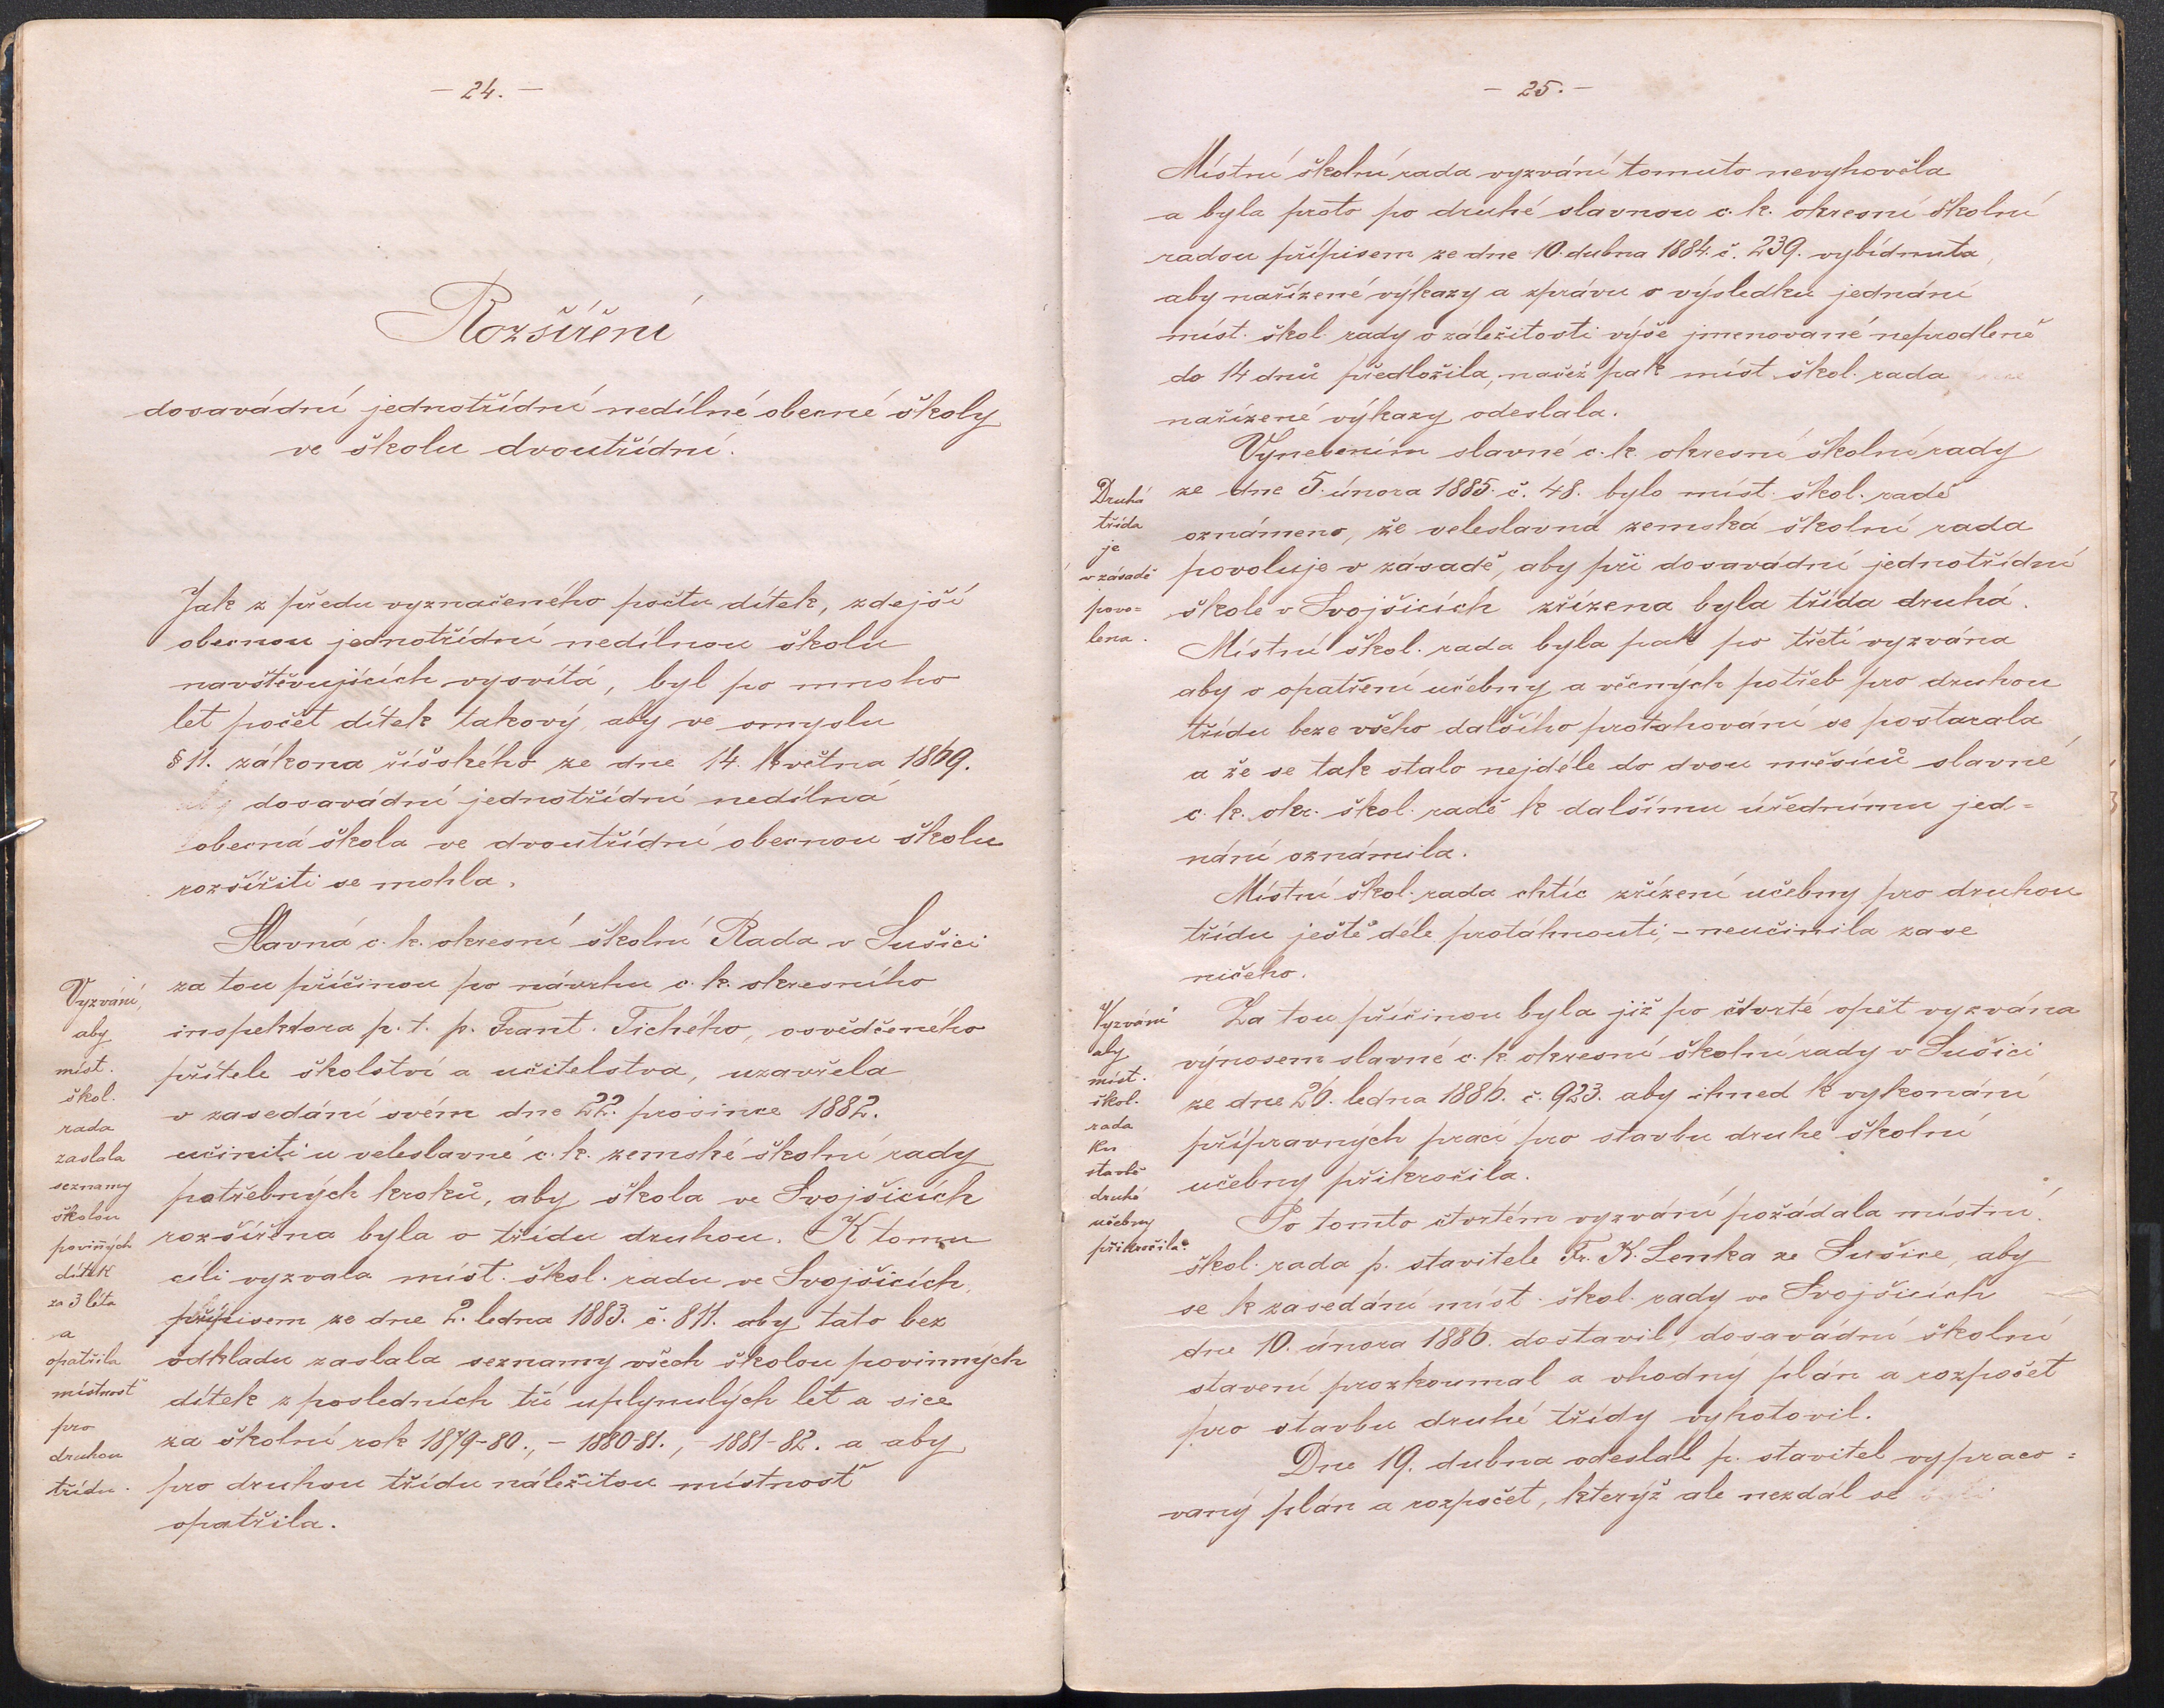 — 24. —
Rozšíření
dosavádní jednotřídní nedílné obecné školy
ve školu dvoutřídní.
Jak z předu vyznačeného počtu dítek, zdejší
obecnou jednotřídní nedílnou školu
navštěvujících vysvítá, byl po mnoho
let počet dítek takový, aby ve smyslu
§ 11. zákona říšského ze dne 14. května 1869.
dosavádní jednotřídní nedílná
obecná škola ve dvoutřídní obecnou školu
rozšířiti se mohla.
Slavná c. k. okresní školní Rada v Sušici
za tou příčinou po návrhu c. k. okresního
inspektora p. t. p. Frant. Tichého, osvědčeného
přítele školství a učitelstva, uzavřela
v zasedání svém dne 22. prosince 1882.
učiniti u veleslavné c. k. zemské školní rady
potřebných kroků, aby škola ve Svojšicích
rozšířena byla o třídu druhou. K tomu
cíli vyzvala míst. škol. radu ve Svojšicích,
přípisem ze dne 2. ledna 1883. č. 811. aby tato bez
odkladu zaslala seznamy všech školou povinných
dítek z posledních tří uplynulých let a sice
za školní rok 1879-80., – 1880-81., – 1881-82. a aby
pro druhou třídu náležitou místnosť
opatřila.
Vyzvání,
aby
míst.
škol.
rada
zaslala
seznamy
školou
povinných
dítek
za 3 léta
a
opatřila
místnosť
pro
druhou
třídu.
— 25. —
Místní školní rada vyzvání tomuto nevyhověla
a byla proto po druhé slavnou c. k. okresní školní
radou přípisem ze dne 10. dubna 1884. č. 239. vybídnuta,
aby nařízené výkazy a zprávu o výsledku jednání
míst. škol. rady v záležitosti výše jmenované neprodleně
do 14 dnů předložila, načež pak míst. škol. rada
nařízené výkazy odeslala.
Vynešením slavné c. k. okresní školní rady
ze dne 5. února 1885. č. 48. bylo míst. škol. radě
oznámeno, že veleslavná zemská školní rada
povoluje v zásadě, aby při dosavádní jednotřídní
škole v Svojšicích zřízena byla třída druhá.
Místní škol. rada byla pak po třetí vyzvána
aby o opatření učebny a věcných potřeb pro druhou
třídu beze všeho dalšího protahování se postarala
a že se tak stalo nejdéle do dvou měsíců slavné
c. k. okr. škol. radě k dalšímu úřednímu jed=
nání oznámila.
Místní škol. rada chtíc zřízení učebny pro druhou
třídu ještě déle protáhnouti, – neučinila zase
ničeho.
Za tou příčinou byla již po čtvrté opět vyzvána
výnosem slavné c. k. okresní školní rady v Sušici
ze dne 26. ledna 1886. č. 923. aby ihned k vykonání
přípravných prací pro stavbu druhé školní
učebny přikročila.
Po tomto čtvrtém vyzvání požádala místní
škol. rada p. stavitele Fr. K. Lenka ze Sušice, aby
se k zasedání míst. škol. rady ve Svojšicích
dne 10. února 1886. dostavil, dosavádní školní
stavení prozkoumal a vhodný plán a rozpočet
pro stavbu druhé třídy vyhotovil.
Dne 19. dubna odeslal p. stavitel vypraco=
vaný plán a rozpočet, kterýž ale nezdál se
Druhá
třída
je
v zásadě
povo=
lena.
Vyzvání
aby
míst.
škol.
rada
ku
stavbě
druhé
učebny
přikročila.